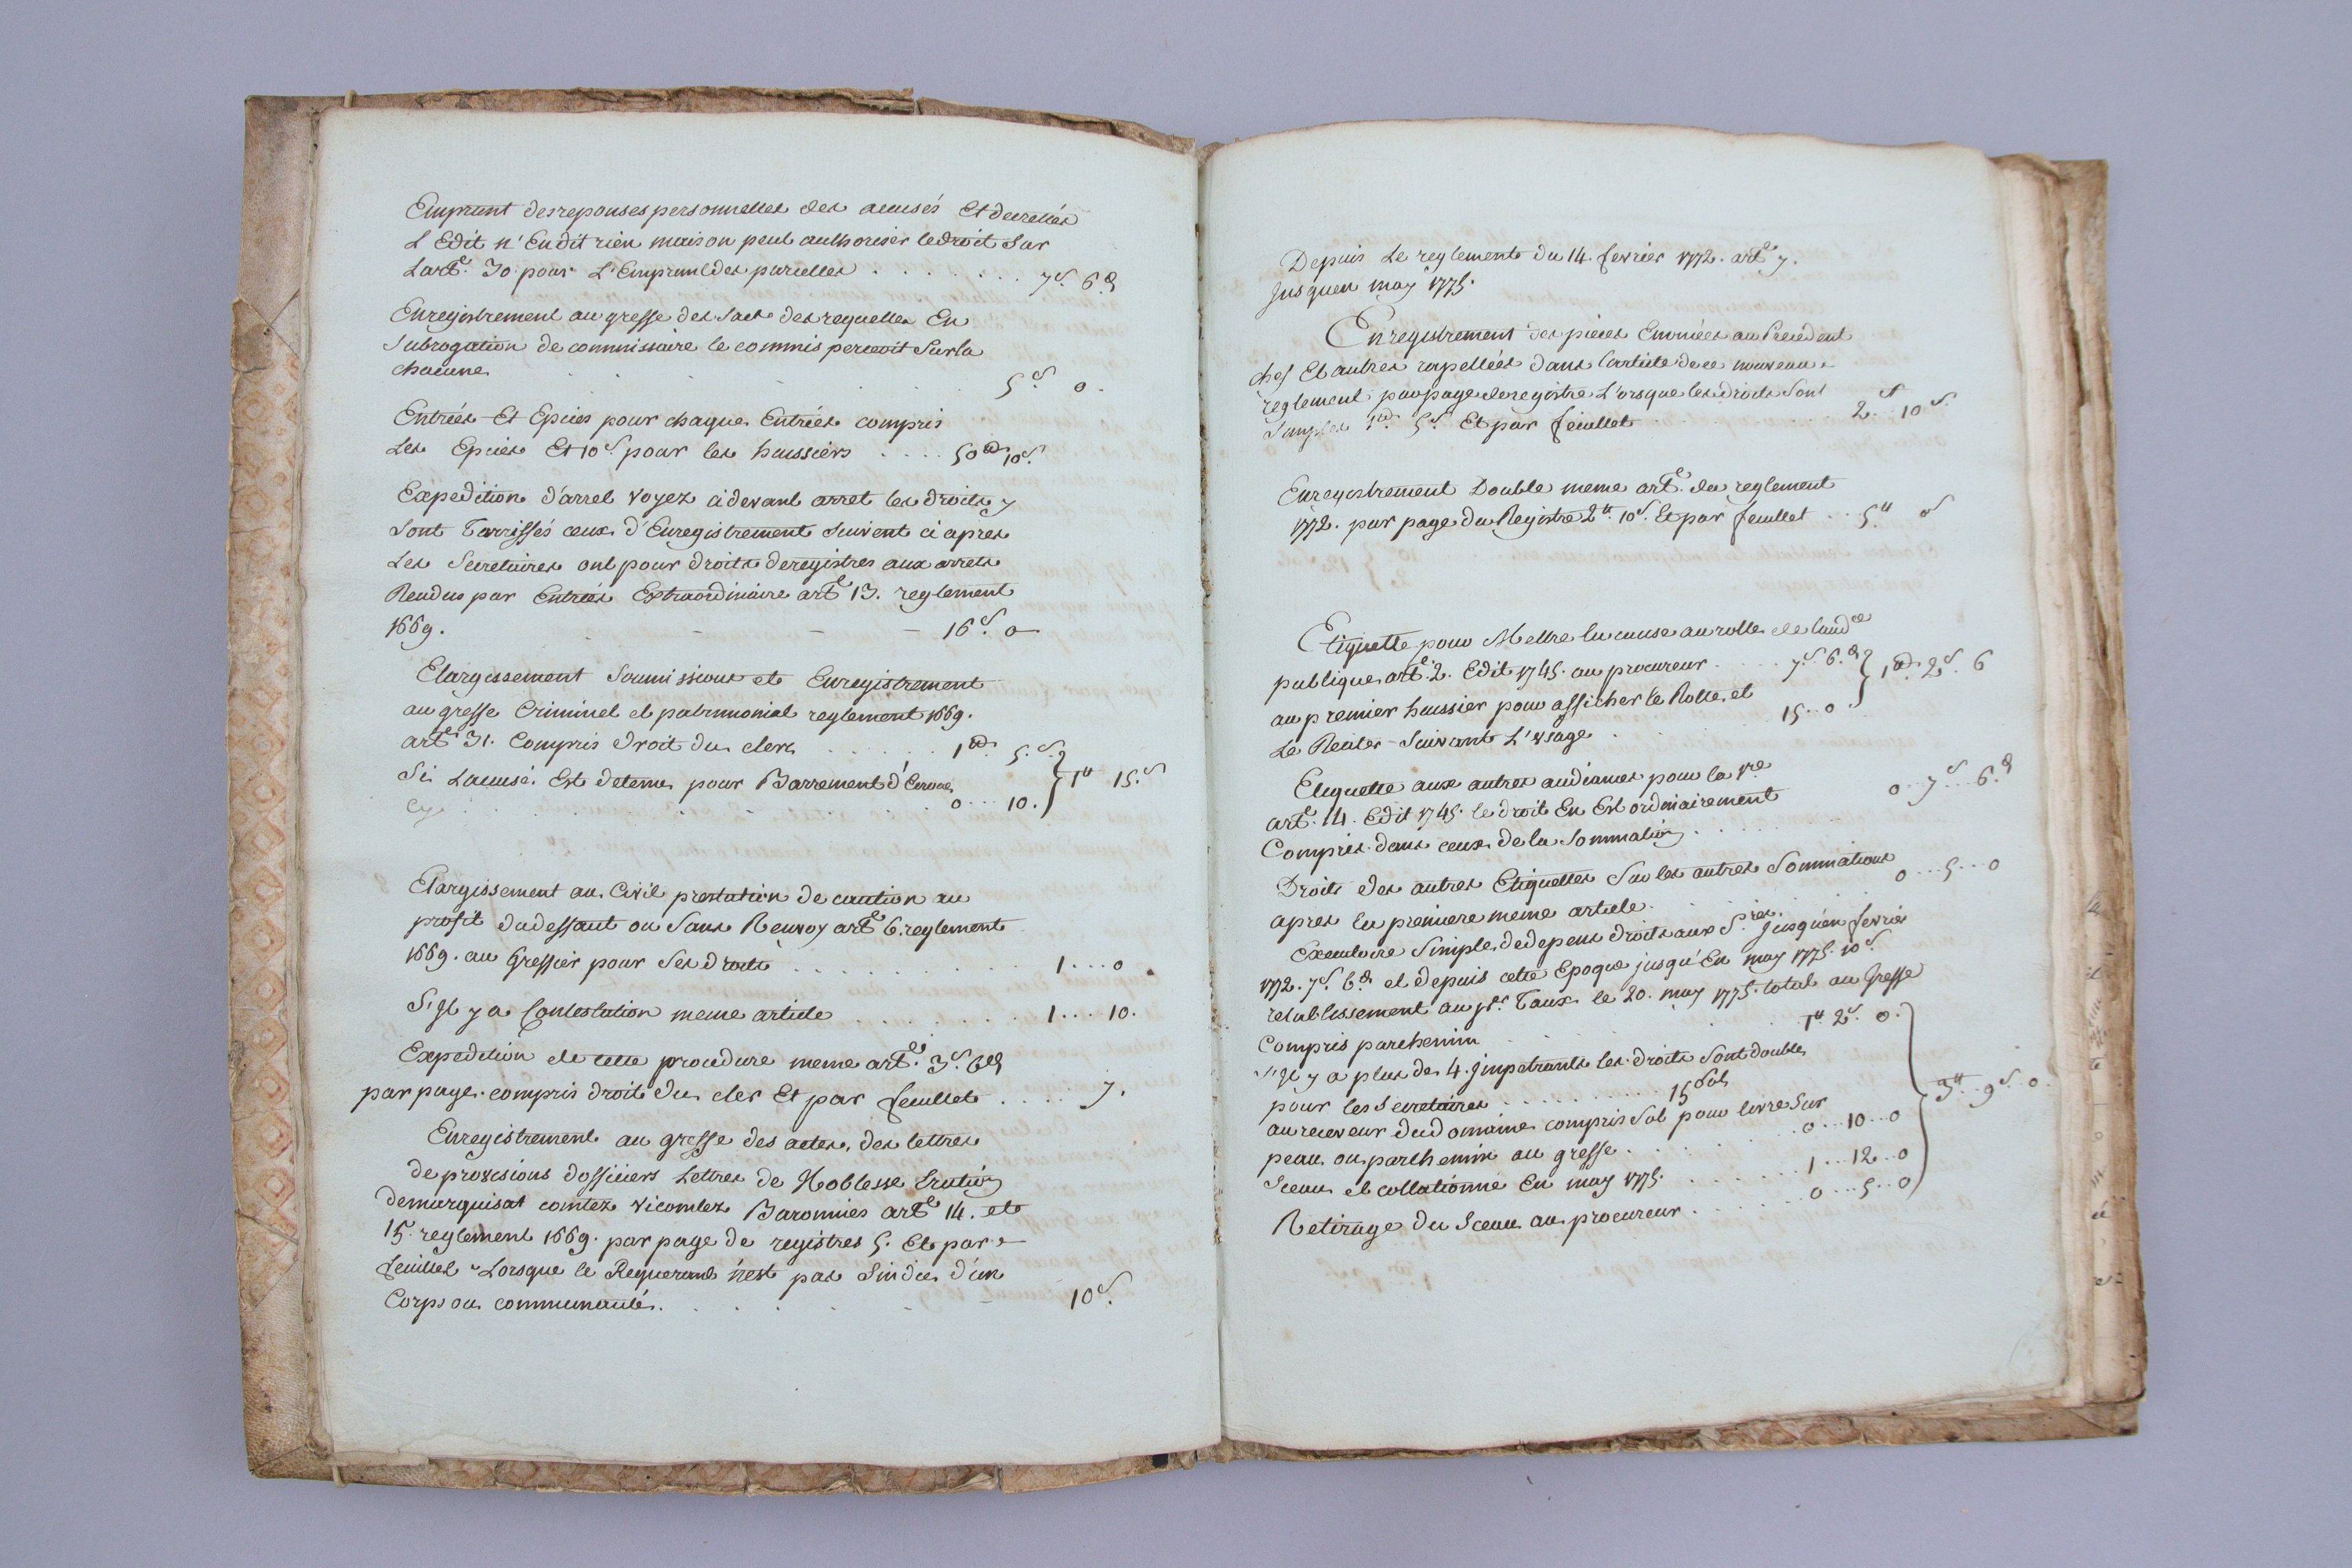 Emprunt des reponses personnelles des accusés Et decretés
L'Edit n'En dit rien mais on peut authoriser le droit Sur
Lart.e 30 pour L'Emprunt des parcelles . . . . . . . 7.s 6.d
Enregistrement au greffe des Sacs des requettes En
Subrogation de commissaire le commis percevoit Sur la
chacune . . . . . . . . 5.s 0.
Entrées Et Epices pour chaque Entrées compris
Les Epices Et 10.s pour les huissiers . . . . 50.tt 10.s
Expedition d'arret voyez cidevant arret les droits y
Sont Tariffés ceux d'Enregistrement Suivent ci apres
Les Secretaires ont pour droits de registres aux arrets
Rendus par Entrées Extraordinaire art.e 13. reglement
1669. - - - - 16.s 0
Elargissement Soumissions et Enregistrement
au greffe Criminel et patrimonial reglement 1669.
art.e 31. Compris droit du clerc . . . . . . 1.tt 5.s
Si L'accusé Est detenu pour Barrement d'Ecroue } 1.tt 15.s
cy . . . . . . . . . . 0 . . . 10.
Elargissement au Civil prestation de caution au
profit du deffaut ou Sans Renvoy art.e 6. reglement
1669. au Greffier pour Ses droits . . . . . . . . . 1 . . . 0.
S'Il y a Contestation meme article . . . . . . . . 1 . . . 10.
Expedition de cette procedure meme art.e 3.s 6.d
par page compris droit du clerc Et par feuillet . . . . . 7.
Enregistrement au greffe des actes, des lettres
de provisions d'officiers Lettres de Noblesse Eration
de marquisat comtez vicomtez Baronnies art.e 14. et
15. reglement 1669. par page de registres 5. Et par
feuillet Lorsque le Requerant n'est pas Sindic d'un
Corps ou communauté . . . . . . . 10.s
Depuis Le reglement du 14. fevrier 1772. art.e 7.
Jusqu'en may 1775.
Enregistrement des pieces Enoncées au Precedent
chef Et autres rapellées dans l'article de ce nouveau
reglement par page de registre L'orsque les droits Sont
Simples 1.tt 5.s Et par feuillet . . . . . . . 2.tt 10.s
Enregistrement Double meme art.e du reglement
1772. par page du Registre 2.tt 10.s Et par feuillet . . . 5.tt s
Etiquette pour Mettre la cause au rolle de laud.ce
publique art.e 2. Edit 1745. au procureur . . . . . 7.s 6.d } 1.tt 2.s 6
au premier huissier pour afficher le Rolle, et
Le Reiter Suivant L'usage . . . . . . . 15 . . 0.
Etiquette aux autres audiances pour la 1.re
art.e 14. Edit 1745. le droit En Est ordinairement 0 . . 7.s . . 6.d
Compris dans ceux de la Sommation . . . . .
Droits des autres Etiquettes Sur les autres Sommations
apres la premiere meme article . . . . . . 0 . . . 5 . . . 0
Executoire Simple de depens droits aux S.res Jusqu'en fevrier
1772. 7.s 6.d et depuis cette Epoque jusqu'En may 1775. 10.s
retablissement au p.r Taux le 20. may 1775. total au Greffe
Compris parchemin . . . . . . . . 1.tt 2.s 0.
S'Il y a plus de 4. Impetrants les droits Sont doubles
pour les Secretaires . . . . . . . . . 15 Sols
au receveur du domaine compris Sol pour livre Sur
peau ou parchemin au greffe . . . . . . 0 . . . 10 . . 0 } 3.tt . . 9.s . . 0.
Sceau et collationné En may 1775. . . . . . . . 1 . . . 12 . . 0
Retirage du Sceau au procureur . . . . . . 0 . . . 5 . . 0